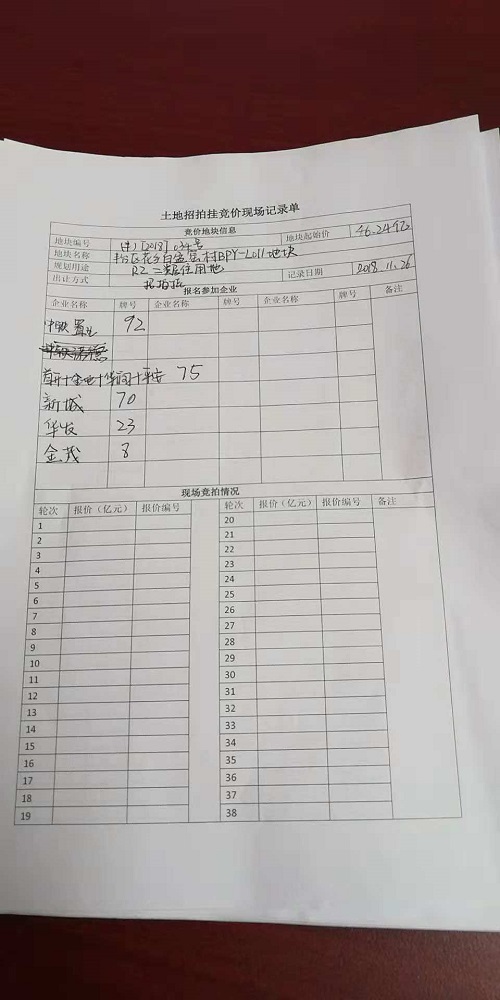 土地招拍挂竞价现场记录单
竞价地块信息
地块编号 [2018] 034号 地块起始价 46.24亿
地块名称 丰台区花乡白盆窑村BPY-L011地块
规划用途 R2二类居住用地
出让方式 招拍挂 记录日期 2018.11.26
报名参加企业
企业名称 牌号 企业名称 牌号 企业名称 牌号 备注
中铁置业 92
首开+金地+华润+平安 75
新城 70
华发 23
金茂 8
现场竞拍情况
轮次 报价（亿元） 报价编号 轮次 报价（亿元） 报价编号 备注
1 20
2 21
3 22
4 23
5 24
6 25
7 26
8 27
9 28
10 29
11 30
12 31
13 32
14 33
15 34
16 35
17 36
18 37
19 38